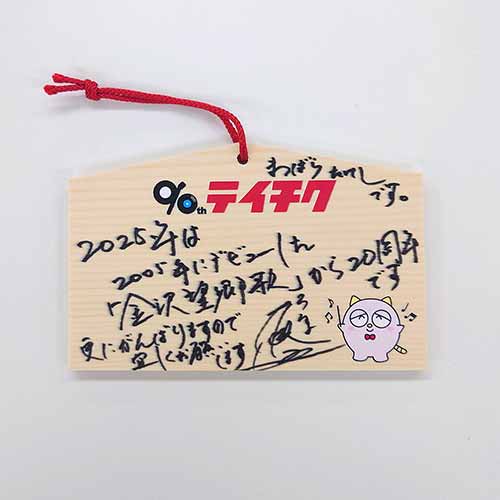 まつばら たけし
です。
90th テイチク
2025年は
2005年にデビューした
「金沢望郷歌」から20周年
です
更にがんばりますので
宜しくお願いします